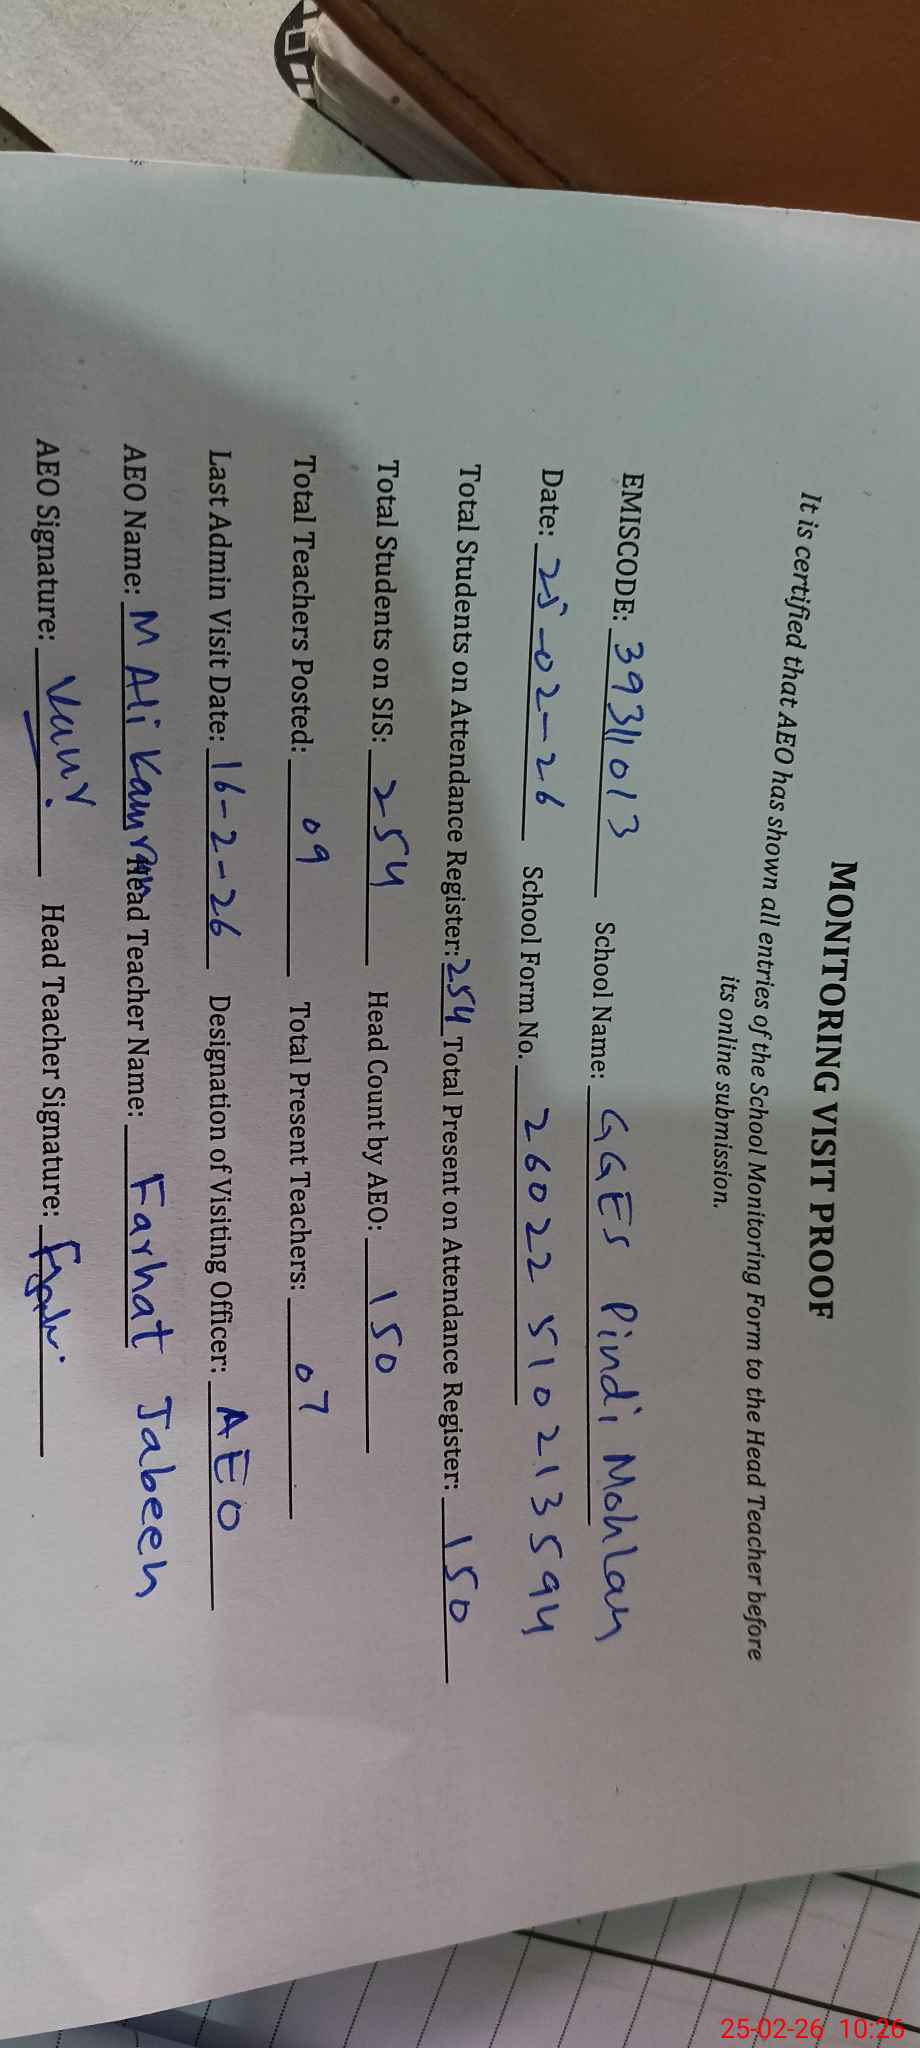 MONITORING VISIT PROOF
It is certified that AEO has shown all entries of the School Monitoring Form to the Head Teacher before
its online submission.
EMISCODE: 39311013 School Name: GGES Pindi Mohlan
Date: 25-02-26 School Form No. 26022 5102135994
Total Students on Attendance Register: 254 Total Present on Attendance Register: 150
Total Students on SIS: 254 Head Count by AEO: 150
Total Teachers Posted: 09 Total Present Teachers: 07
Last Admin Visit Date: 16-2-26 Designation of Visiting Officer: AEO
AEO Name: M Ali Kamran Head Teacher Name: Farhat Jabeen
AEO Signature: Head Teacher Signature:
25-02-26 10:26